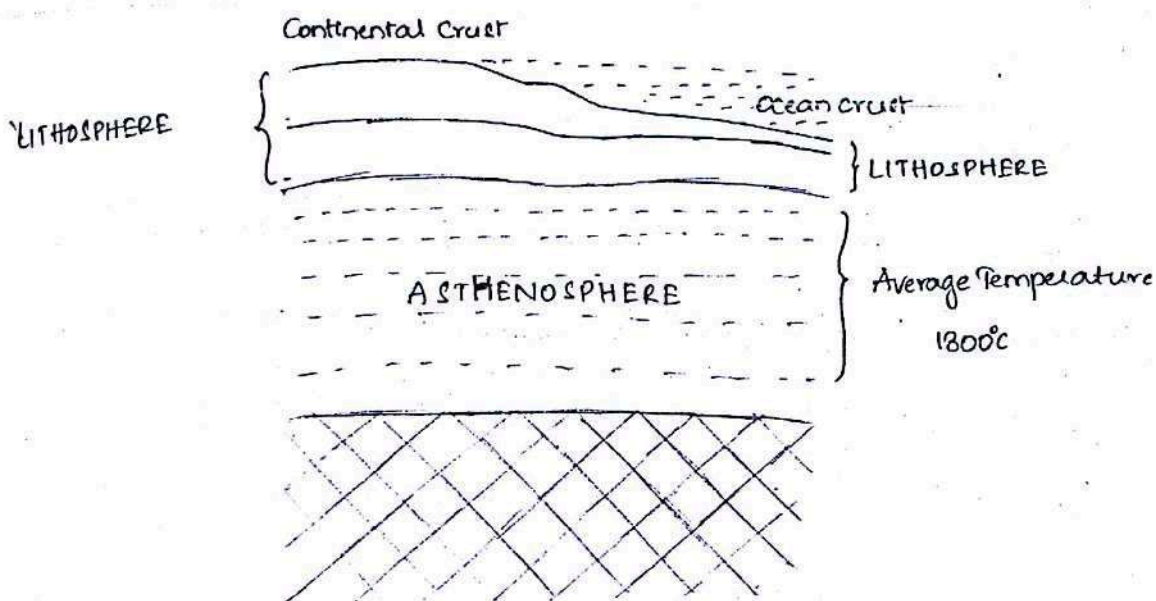 Continental Crust
Ocean Crust
LITHOSPHERE
LITHOSPHERE
ASTHENOSPHERE
Average Temperature
1300°C